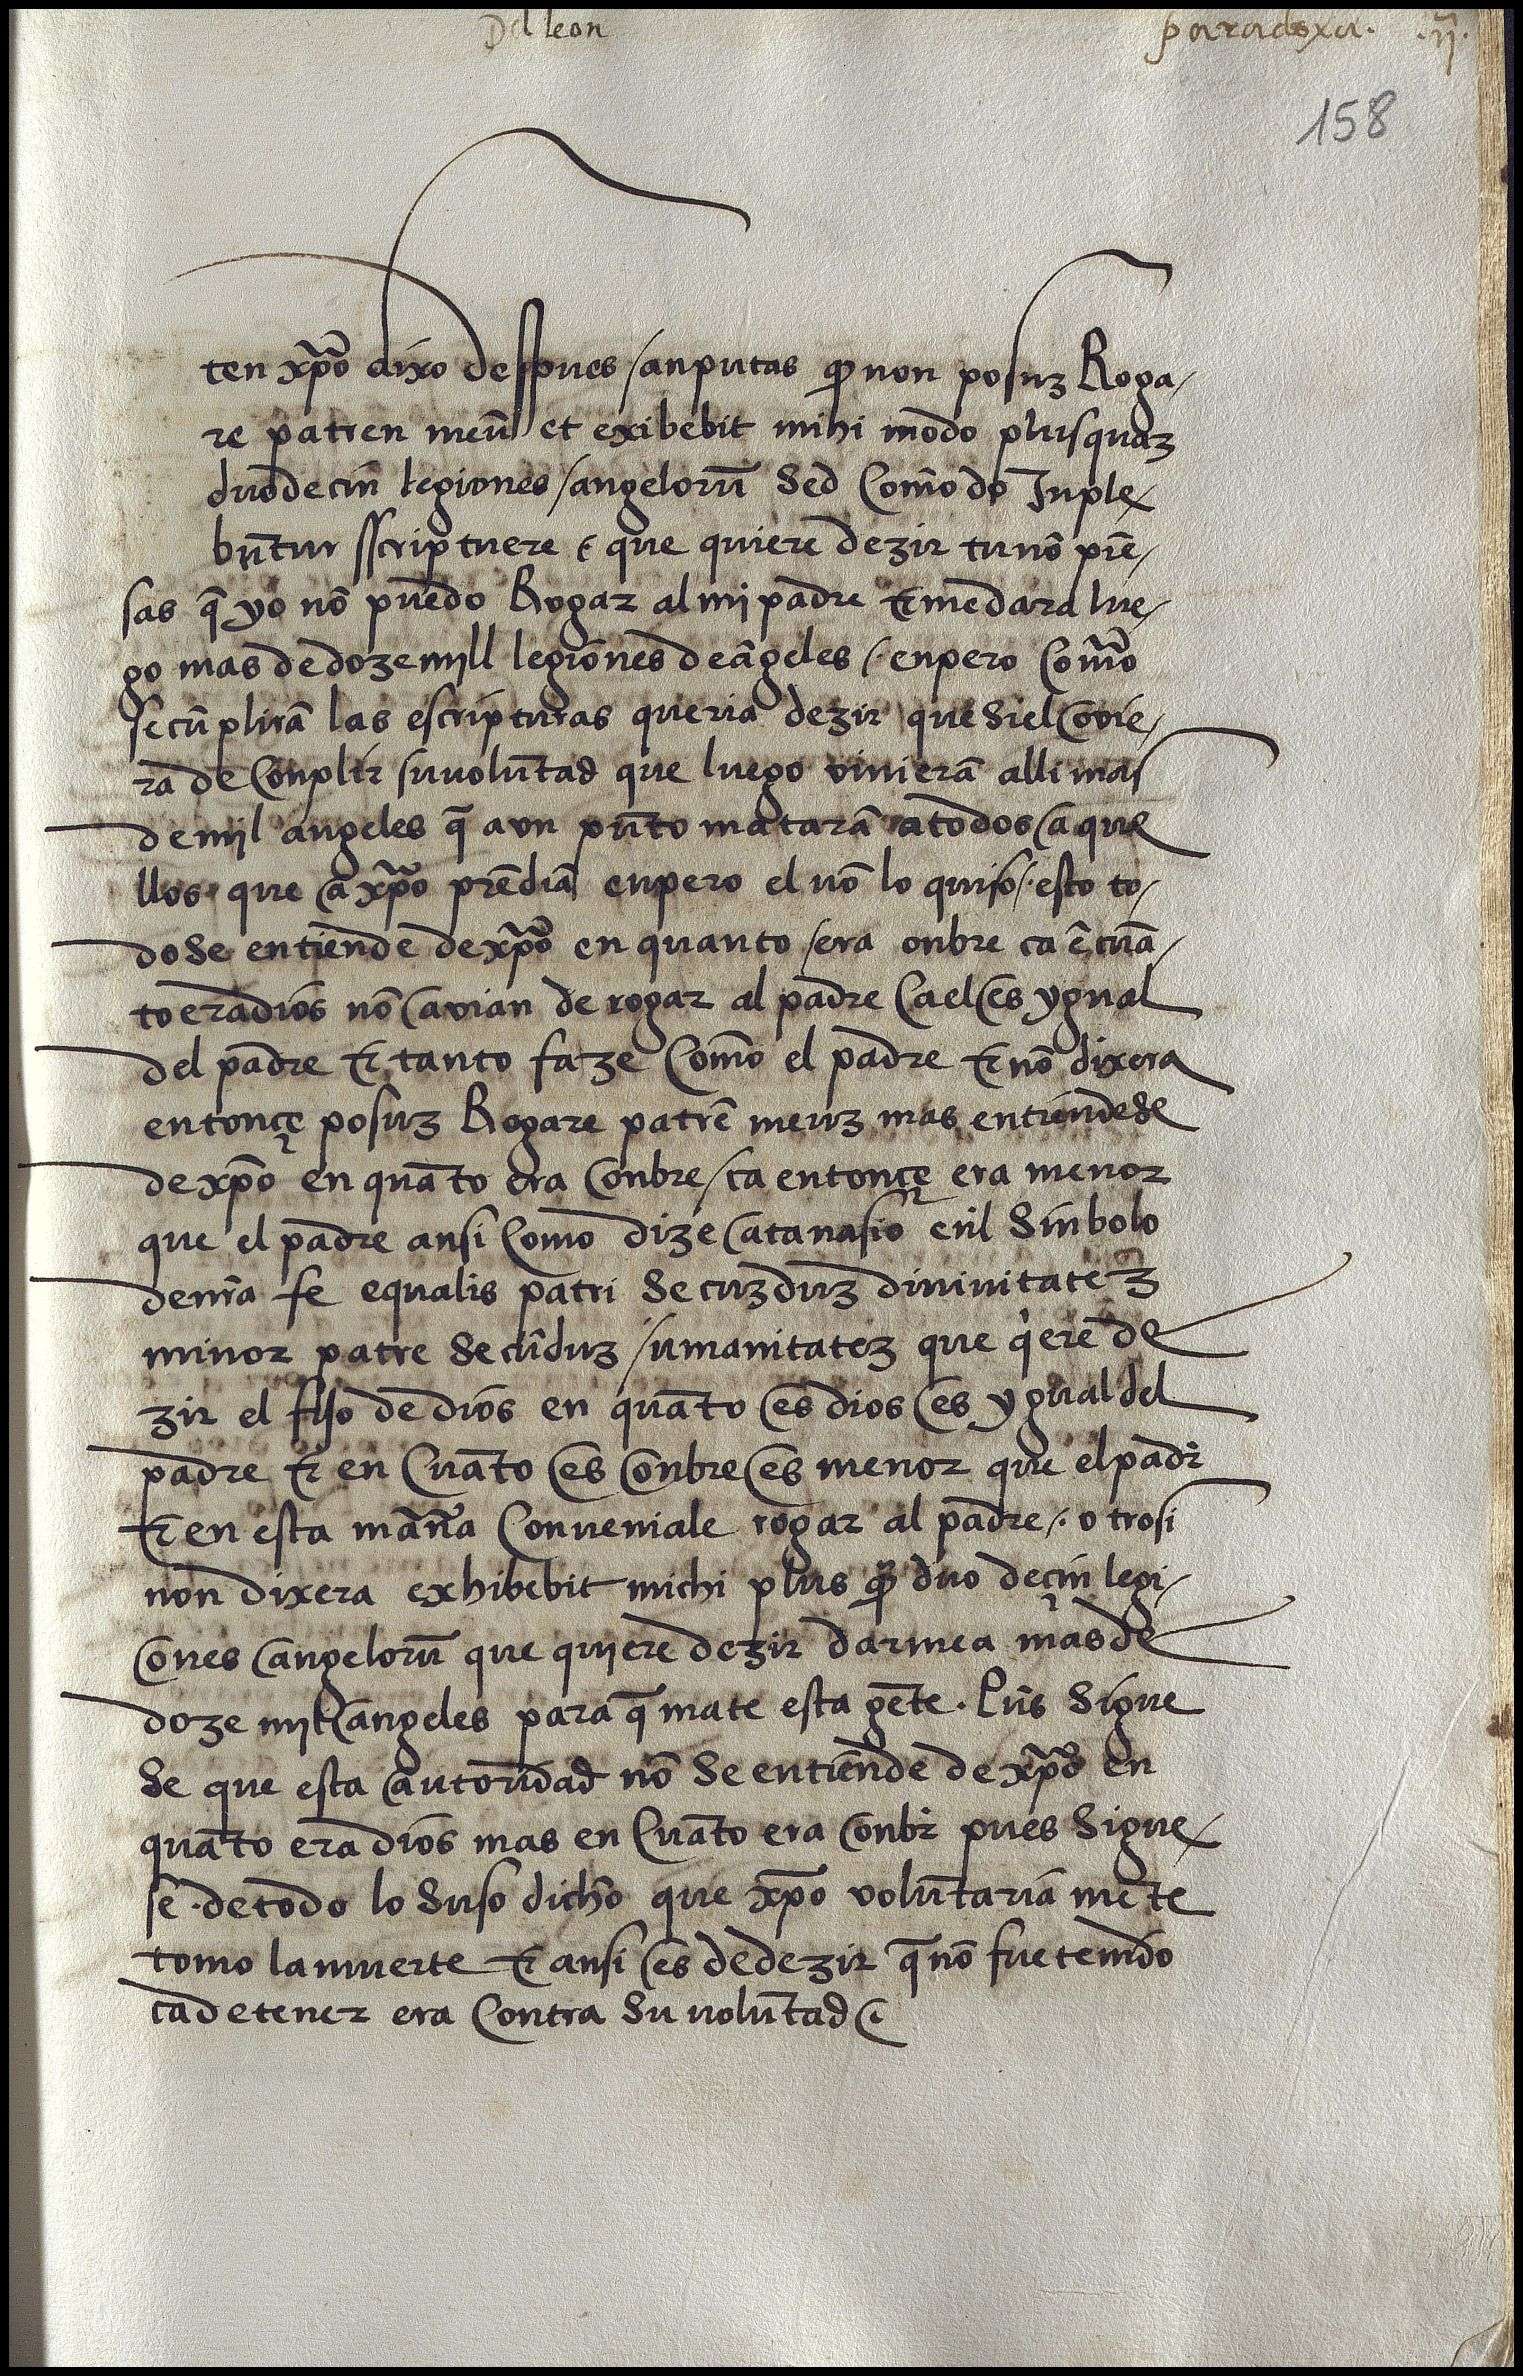 Del leon paradoxa. .ij.
158
ten xp̃o dixo despues / an putas q̃ non posuz Roga/
re patren meũ et exibebit mihi modo plusquaz
duodecin legiones / angelorũ Sed Com̃odo Inple/
bũtur sscriptuere que quiere dezir tu nõ piẽ/
sas q̃ yo nõ puedo Rogar al mj padre & me dara lue/
go mas de doze mjll legiones de ãgeles /. enpero Com̃o
se cũplirã las escripturas queria dezir que Si el ovie/
ra de Conplir su volũtad que luego vinierã alli mas
de mjl angeles q̃ a vn pũto matarã a todos aque
llos que a xp̃o prẽdiã enpero el nõ lo quiso /. esto to/
do Se entiende de xp̃o en quanto / era onbre ca ẽ cuã/
to era dios nõ avian de rogar al padre Ca el es ygual
del padre & tanto faze Com̃o el padre & nõ dixera
entonçe posuz Rogare patrẽ meuz mas entiendese
de xp̃o en quãto era onbre / ca entonçe era menor
que el padre ansi Como dize atanasio eñl Sinbolo
de nr̃a fe equalis patri Secuzduz diuinitatez
minor patre Secũduz / umanitatez que q̃ere de
zir el fijo de dios en quãto es dios es ygual del
padre & en Cuãto es onbre es menor que el padr̃
& en esta mãña Conueniale rogar al padre /. otrosi
non dixera exhibebit michi plus q̃ duo deçin legi/
ones angelorũ que qujere dezir darmea mas de
doze mjl angeles para q̃ mate esta gẽte . Pus Sigue
Se que esta autoridad nõ Se entiende de xp̃o en
quãto era dios mas en Cuãto era onbr̃ pues Sigue/
se . de todo lo Suso dicho que xp̃o volũtariã mẽte
tomo la muerte & ansi es de dezir q̃ nõ fue tenido
ca detener era Contra Su volũtad